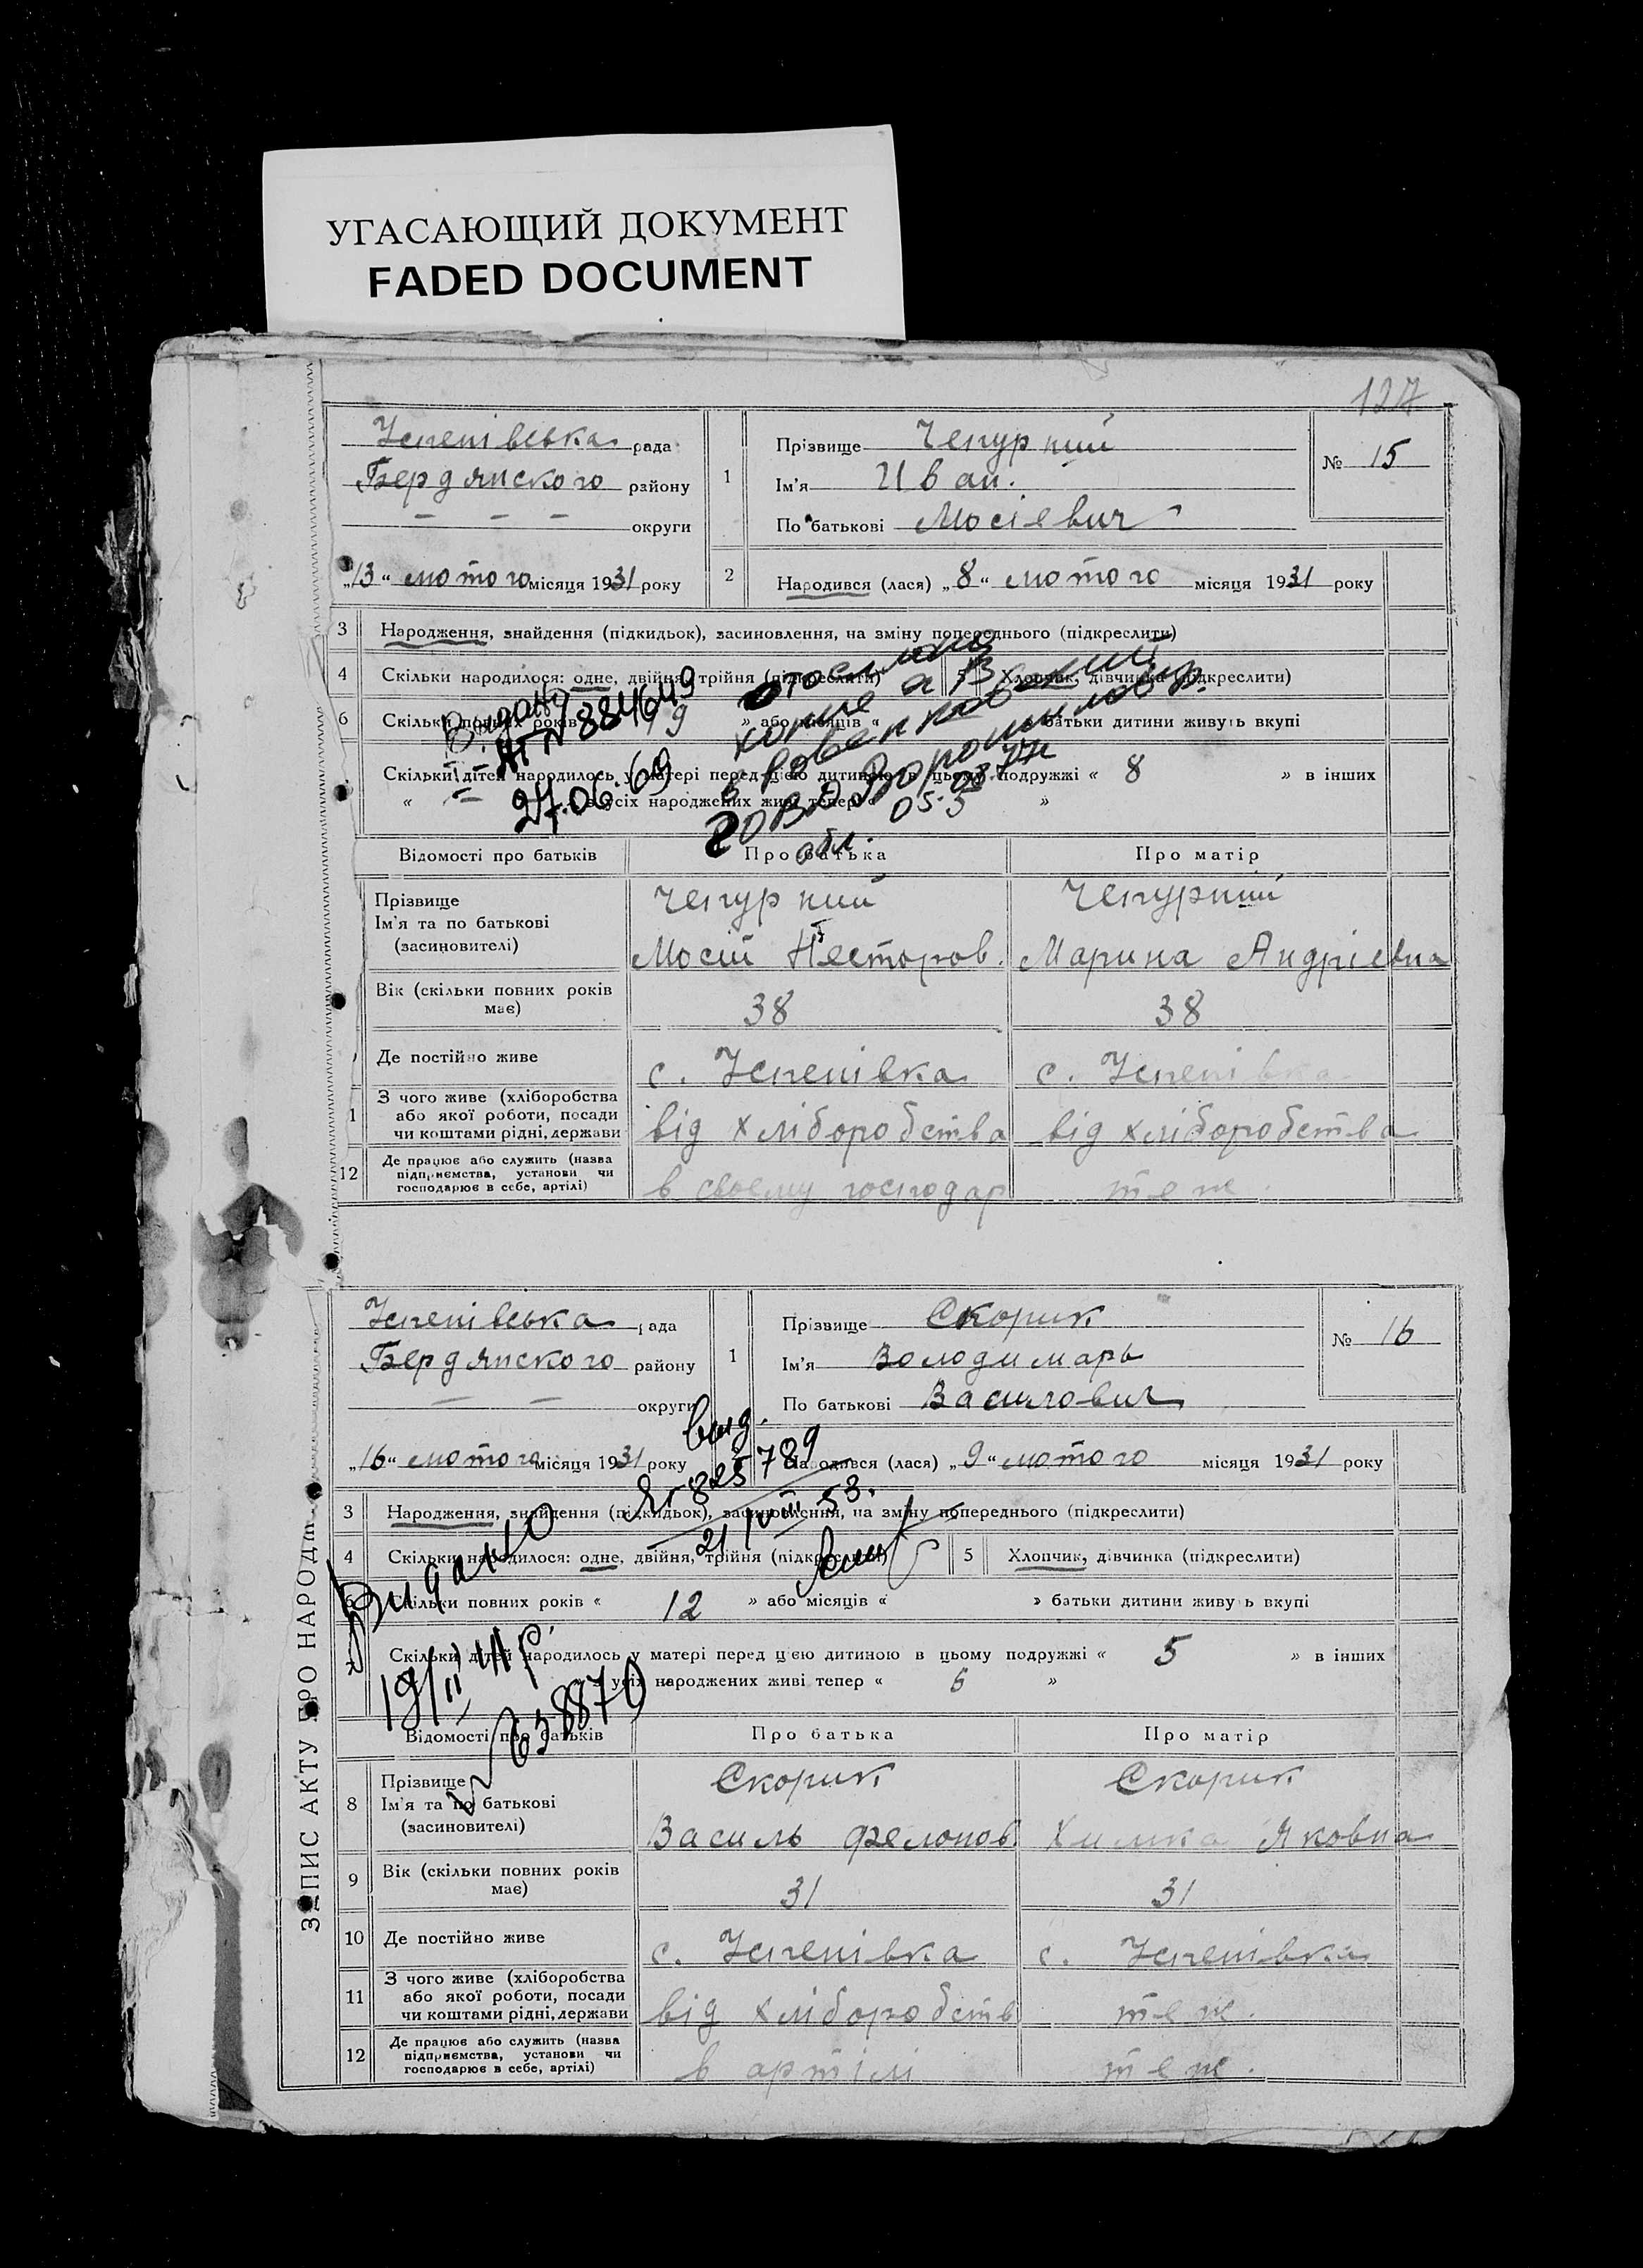 УГАСАЮЩИЙ ДОКУМЕНТ
FADED DOCUMENT
127
Успенівська рада
Бердянского району
— — — округи
„13“ лютого місяця 1931 року
1
Прізвище Чепурний
Ім'я Иван.
По батькові Мосієвич
№ 15
2
Народився (лася) „8“ лютого місяця 1931 року
3 Народження, знайдення (підкидьок), засиновлення, на зміну попереднього (підкреслити)
4 Скільки народилося: одне, двійня, трійня (підкреслити) Хлопчик, дівчинка (підкреслити)
6 Скільки повних років 19 » або місяців « батьки дитини живуть вкупі
Скільки дітей народилось у матері перед цією дитиною в цьому подружжі « 8 » в інших
« — з усіх народжених живі тепер « »
27.06.69
обл.
Відомості про батьків Про батька Про матір
Прізвище
Ім'я та по батькові
(засиновителі)
Чепурний Чепурний
Мосій Несторов. Марина Андрієвна
Вік (скільки повних років має) 38 38
Де постійно живе с. Успенівка с. Успенівка
1 З чого живе (хліборобства
або якої роботи, посади
чи коштами рідні, держави
від хліборобства від хліборобства
12 Де працює або служить (назва
підприємства, установи чи
господарює в себе, артілі)
в своему господар теж.
ЗАПИС АКТУ ПРО НАРОДЖ
Успенівська рада
Бердянского району
— — округи
„16“ лютого місяця 1931 року
1
Прізвище Скорик
Ім'я Володимарь
По батькові Васильович
№ 16
Народився (лася) „9“ лютого місяця 1931 року
выд.
Яг 825789
21/VIII 53.
3 Народження, знайдення (підкидьок), засиновлення, на зміну попереднього (підкреслити)
4 Скільки народилося: одне, двійня, трійня (підкреслити) 5 Хлопчик, дівчинка (підкреслити)
Скільки повних років « 12 » або місяців « » батьки дитини живуть вкупі
Скільки дітей народилось у матері перед цією дитиною в цьому подружжі « 5 » в інших
з усіх народжених живі тепер « 5 »
Видано
Відомості про батьків Про батька Про матір
8 Прізвище
Ім'я та по батькові
(засиновителі)
Скорик Скорик
Василь Фелонов Химка Яковна
9 Вік (скільки повних років має) 31 31
10 Де постійно живе с. Успенівка с. Успенівка
11 З чого живе (хліборобства
або якої роботи, посади
чи коштами рідні, держави
від хліборобств теж.
12 Де працює або служить (назва
підприємства, установи чи
господарює в себе, артілі)
в артілі теж.